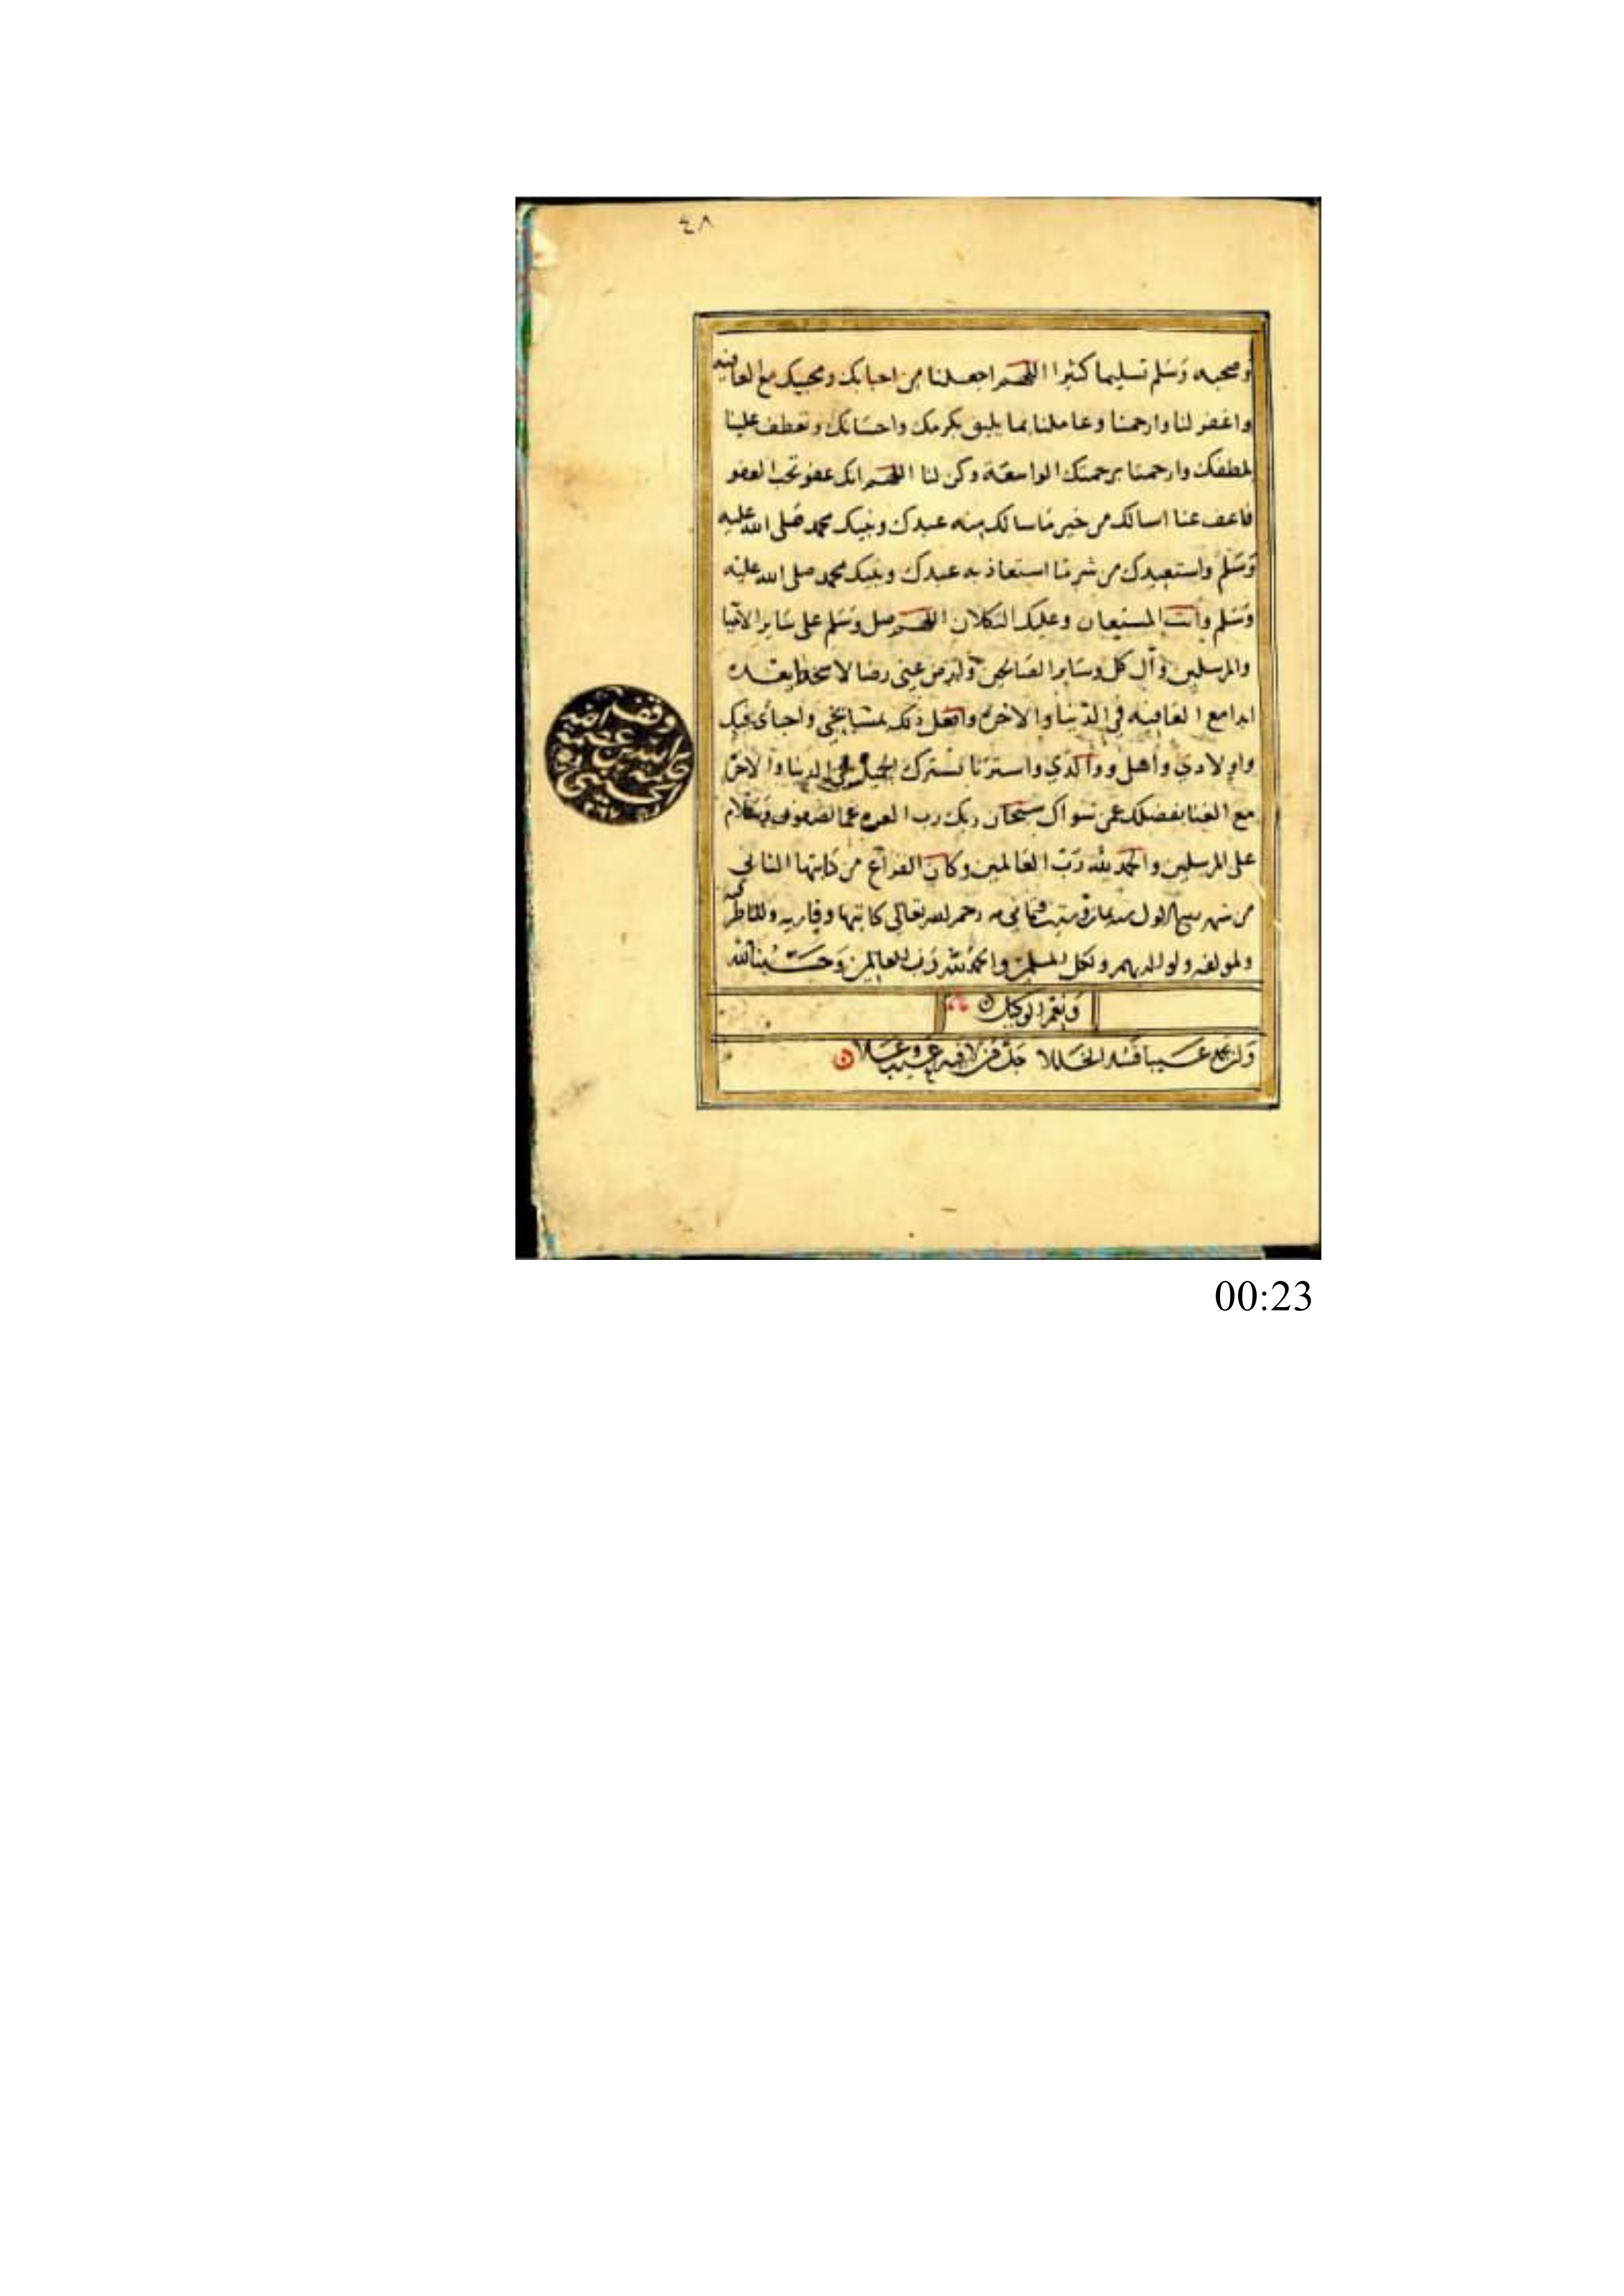 ٤٨
وصحبه وَسَلم تسليما كثيرا اللهم اجعلنا من احبابك ومحبيك مع العافيه
واغفر لنا وارحمنا وعاملنا بما يليق بكرمك واحسانك وتعطف علينا
بلطفك وارحمنا برحمتك الواسعة وكن لنا اللهم انك عفو تحب العفو
فاعف عنا اسالك من خير ما سالك منه عبدك ونبيك محمد صلى الله عليه
وَسَلم واستعيدك من شر ما استعاذ به عبدك ونبيك محمد صلى الله عليه
وَسَلم وانت المستعان وعليك التكلان اللهم صل وسَلم على سَاير الانبيا
والمرسلين وآل كل وساير الصالحين وارض عنى رضا لا سخط بعده
ابدا مع العافيه في الدنيا والاخره وافعل ذلك بمشايخي واحبائ فيك
واولادي وأهل ووالدي واسترنا بسترك الجميل في الدنيا والاخره
مع الغنا بفضلك عمن سواك سبحان ربك رب العزه عما يصفون وسلام
على المرسلين والحمد لله رَبّ العَالمين وكان الفراغ من كتابتها الثانى
من شهر ربيع الاول رحم الله تعالى كاتبها وقاريه وللناظر فيه
ولمولفه ولوالديهم ولكل المسلمين والحمد لله رَب العالمين وَحَسْبُنا الله
وَنِعْمَ الوكيل
وَان تجد عَيبا فسُد الخَللا جَلّ مَن لا فيه عَيب وعَلا
وقفه
السيد
الحسيني
00:23